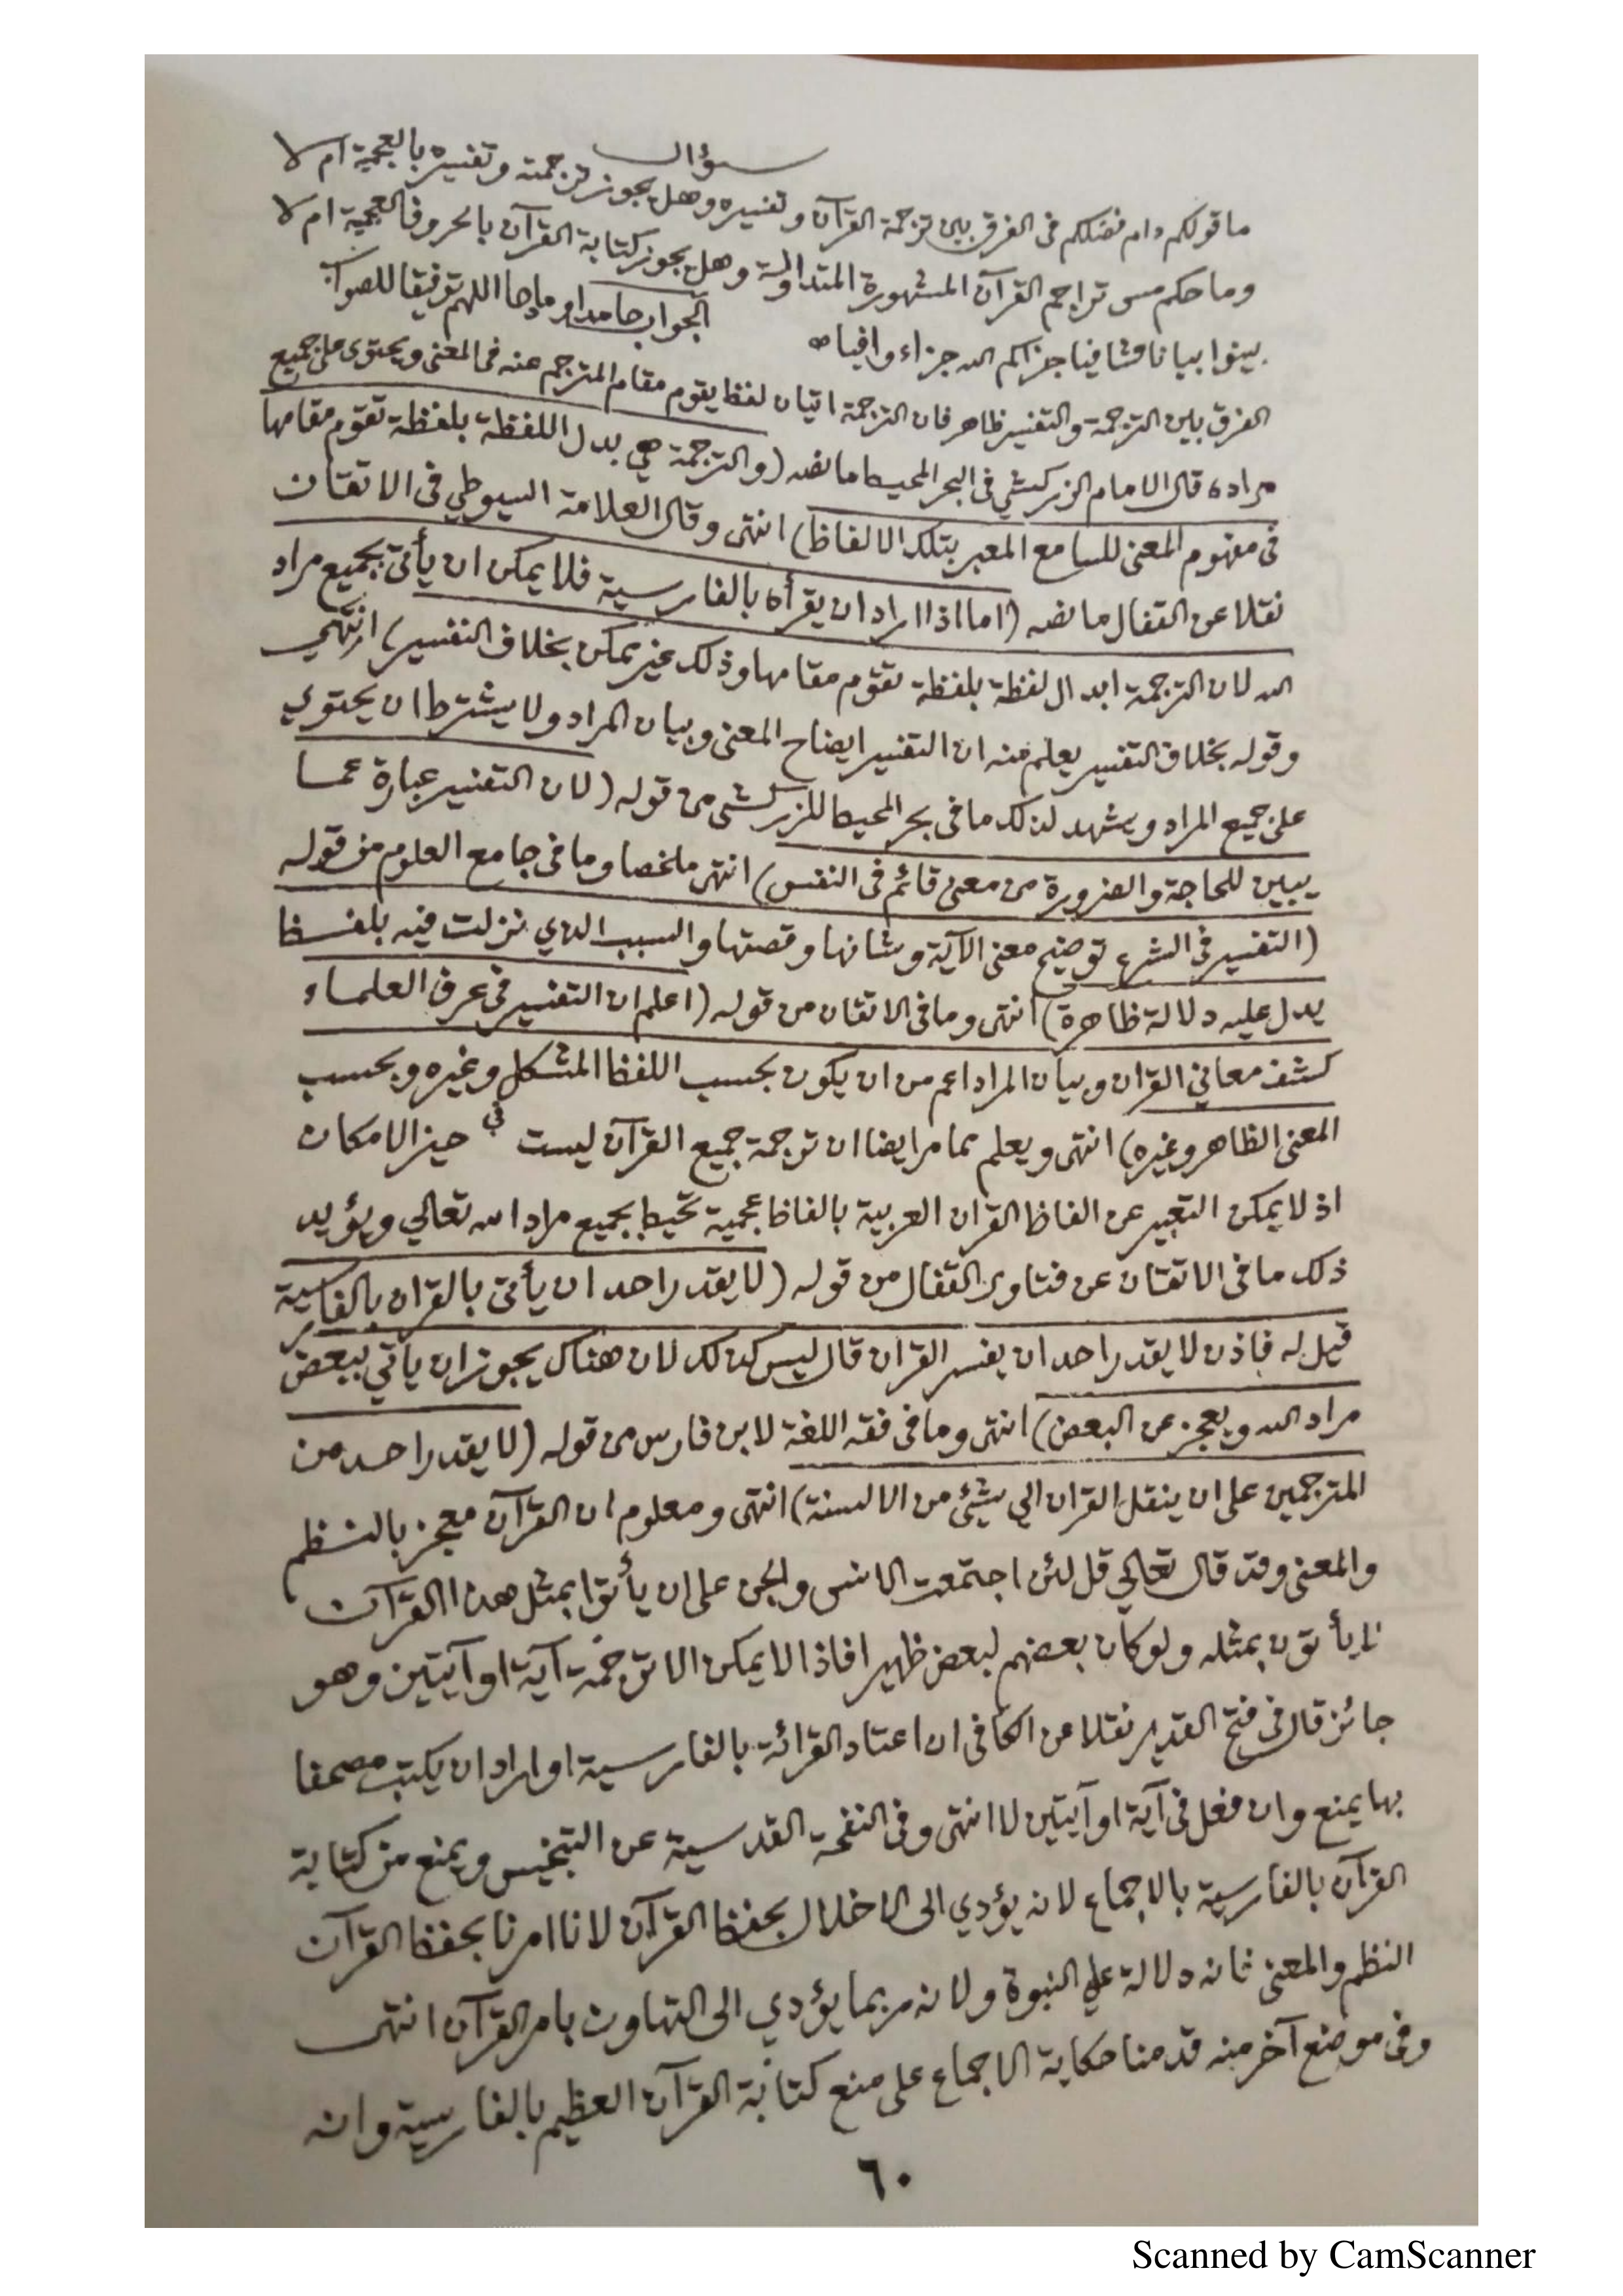 سؤال
ما قولكم دام فضلكم فى الفرق بين ترجمة القرآن و تفسيره وهل يجوز ترجمته وتفسيره بالعجمية ام لا
وما حكم مس تراجم القرآن المشهورة المتداولة وهل يجوز كتابة القرآن بالحروف العجمية ام لا
بينوا بيانا شافيا جزاكم الله جزاء وافيا الجواب حامدا و اللهم توفيقا للصواب
الفرق بين الترجمة والتفسير ظاهر فان الترجمة اتيان لفظ يقوم مقام المترجم عنه فى المعنى ويحتوى على جميع
مراده قال الامام الزركشي فى البحر المحيط ما نصه (والترجمة هي بدل اللفظة بلفظة تقوم مقامها
فى مفهوم المعنى للسامع المعبر بتلك الالفاظ) انتهى وقال العلامة السيوطي فى الاتقان
نقلا عن القفال ما نصه (اما اذا اراد ان يقرأه بالفارسية فلا يمكن ان يأتى بجميع مراد
الله لان الترجمة ابدال لفظة بلفظة تقوم مقامها وذلك غير يمكن بخلاف التفسير) انتهي
وقوله بخلاف التفسير يعلم منه ان التفسير ايضاح المعنى وبيان المراد ولا يشترط ان يحتوي
على جميع المراد ويشهد لذلك ما فى بحر المحيط للزركشى من قوله (لان التفسير عبارة عما
يبين للحاجة والضرورة من معنى قائم فى النفس) انتهى ملخصا وما فى جامع العلوم من قوله
(التفسير فى الشرع توضيح معنى الآية وشانها وقصتها والسبب الذي نزلت فيه بلفظ
يدل عليه دلالة ظاهرة) انتهى وما فى الاتقان من قوله (اعلم ان التفسير فى عرف العلماء
كشف معاني القران وبيان المراد اعم من ان يكون بحسب اللفظ المشكل وغيره وبحسب
المعنى الظاهر وغيره) انتهى ويعلم مما مر ايضا ان ترجمة جميع القرآن ليست في حيز الامكان
اذ لا يمكن التعبير عن الفاظ القران العربية بالفاظ عجمية تحيط بجميع مراد الله تعالي ويؤيد
ذلك ما فى الاتقان عن فتاوى القفال من قوله (لا يقدر احد ان يأتى بالقران بالفارسية
قيل له فاذن لا يقدر احد ان يفسر القران قال ليس كذلك لان هناك يجوز ان يأتي ببعض
مراد الله ويعجز عن البعض) انتهى وما فى فقه اللغة لابن فارس من قوله (لا يقدر احد من
المترجمين على ان ينقل القران الي شئ من الالسنة) انتهى ومعلوم ان القرآن معجز بالنظم
والمعنى وقد قال تعالي قل لئن اجتمعت الانس والجن على ان يأتوا بمثل هذا القرآن
لا يأتون بمثله ولو كان بعضهم لبعض ظهيرا فاذا لا يمكن الا ترجمة آية او آيتين وهو
جائز قال فى فتح القدير نقلا عن الكافى ان اعتاد القرائة بالفارسية او اراد ان يكتب مصحفا
بها يمنع وان فعل فى آية او آيتين لا انتهى وفى النفحة القدسية عن التجنيس ويمنع من كتابة
القرآن بالفارسية بالاجماع لانه يؤدي الى الاخلال بحفظ القرآن لانا امرنا بحفظ القرآن
النظم والمعنى فانه دلالة علي النبوة ولانه ربما يؤدي الى التهاون بامر القرآن انتهى
وفى موضع آخر منه قدمنا حكاية الاجماع على منع كتابة القرآن العظيم بالفارسية وانه
٦٠
Scanned by CamScanner